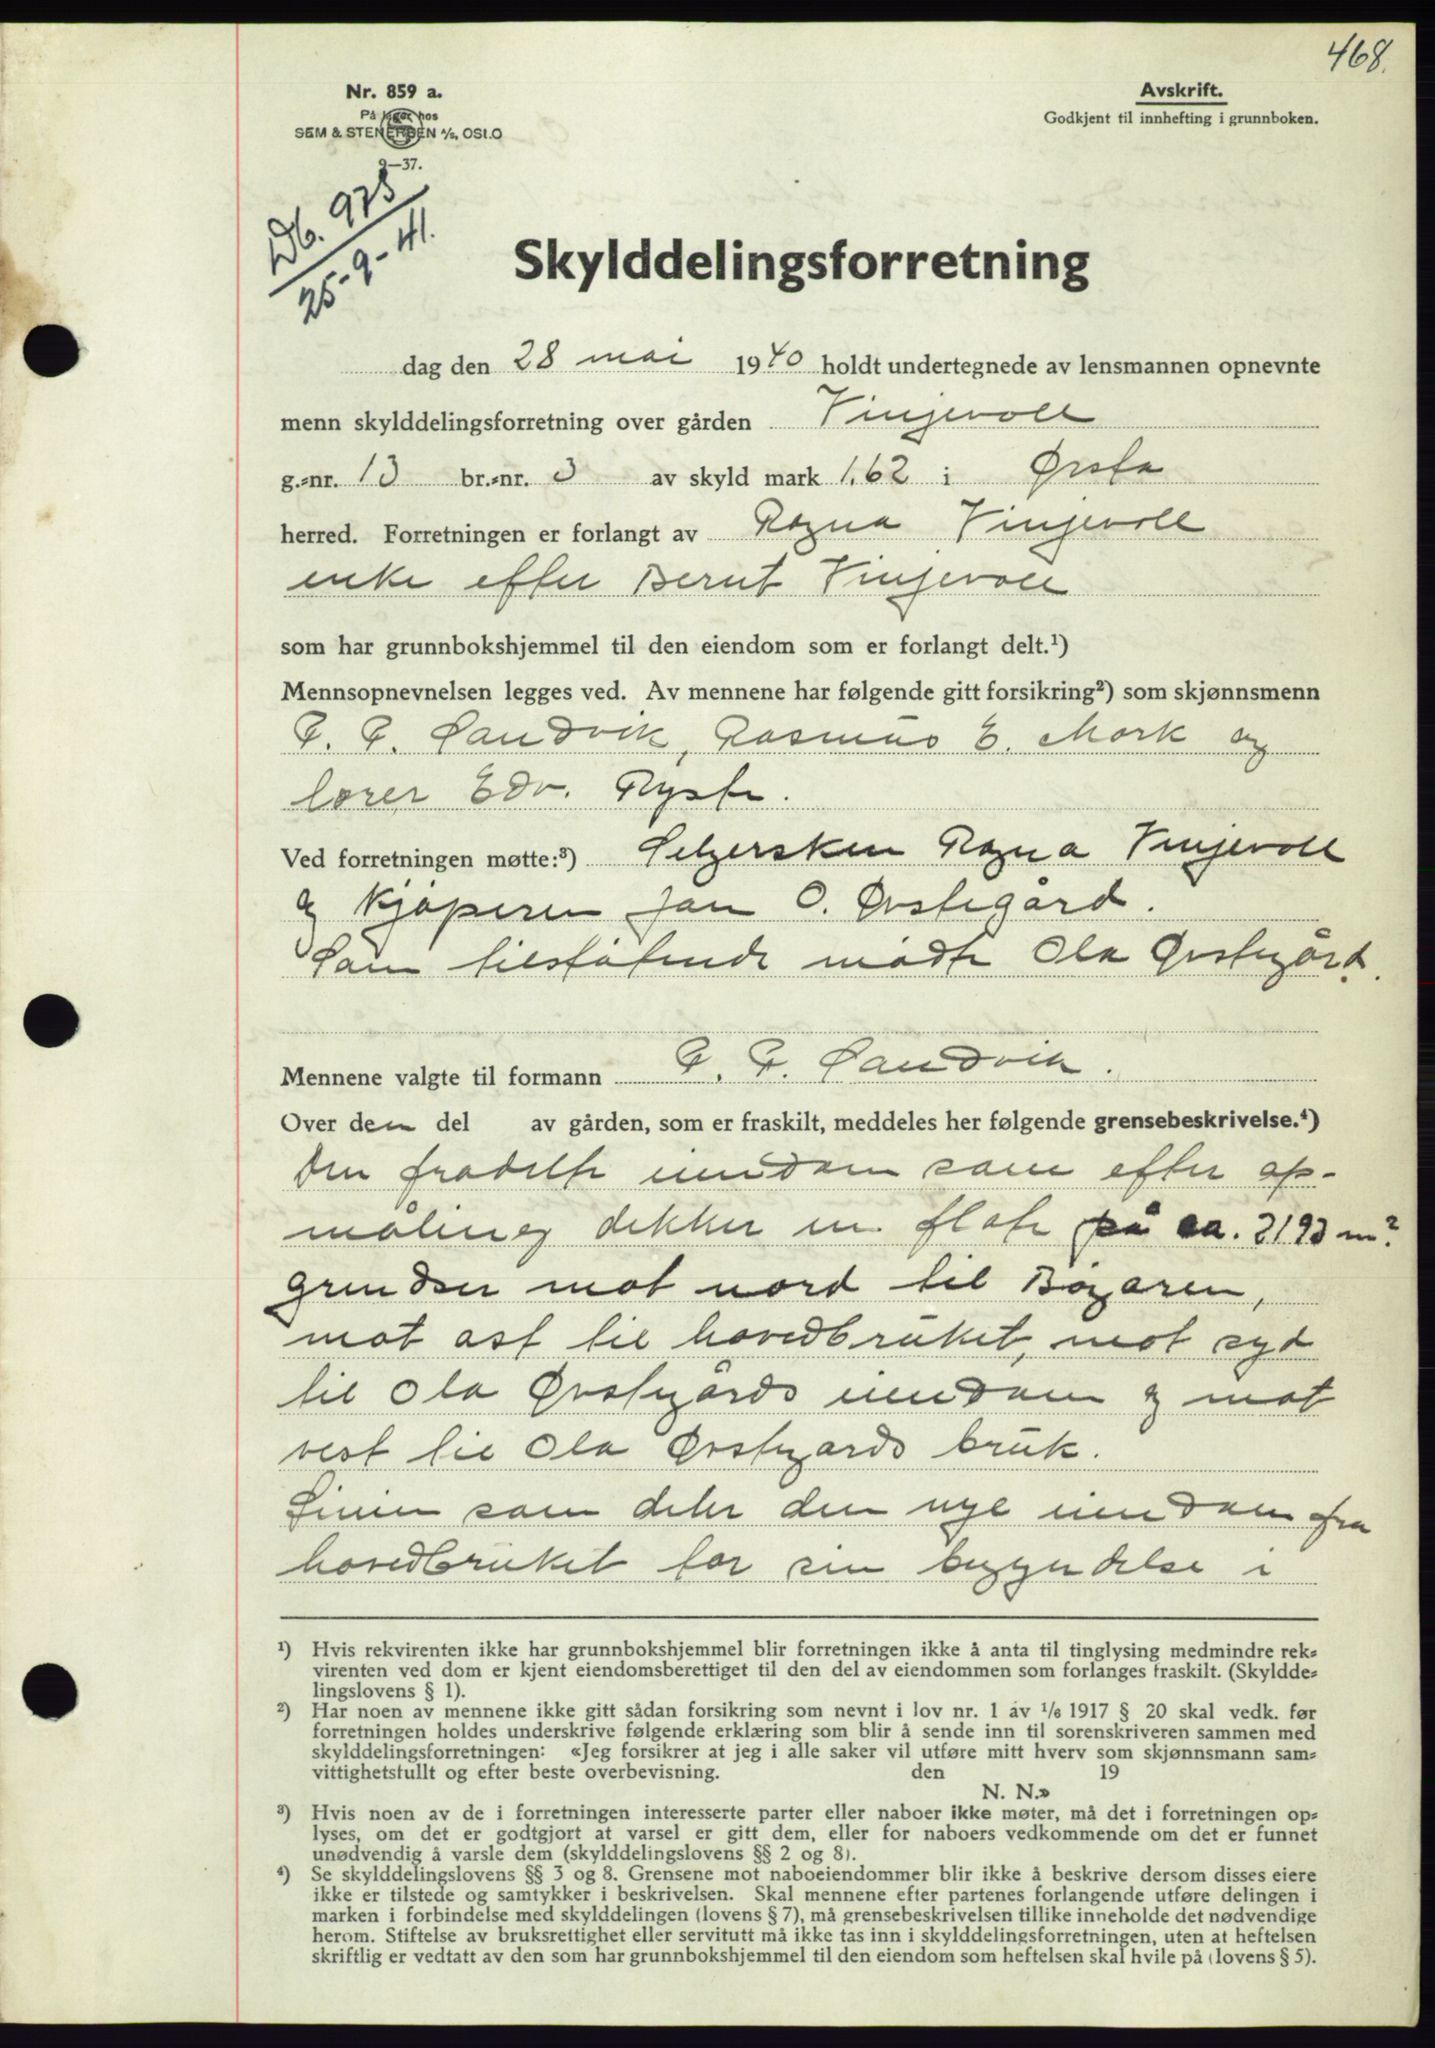 468.
Nr. 859 a.
På lager hos
SEM & STENERSEN A/S, OSLO
9—37.
Avskrift.
Godkjent til innhefting i grunnboken.
Db. 975
25-9-41.
Skylddelingsforretning
dag den 28 mai 1940 holdt undertegnede av lensmannen opnevnte
menn skylddelingsforretning over gården Vinjevoll
g.=nr. 13 br.=nr. 3 av skyld mark 1.62 i Ørsta
herred. Forretningen er forlangt av Ragna Vinjevoll
enke efter Bernt Vinjevoll
som har grunnbokshjemmel til den eiendom som er forlangt delt.¹)
Mennsopnevnelsen legges ved. Av mennene har følgende gitt forsikring²) som skjønnsmenn
P. P. Sandvik, Rasmus E. Mork og
lærer Edv. Ryste.
Ved forretningen møtte:³) Selgersken Ragna Vinjevoll
og Kjøperen Jan O. Øvstegård.
Som tilstøtende mødte Ola Øvstegård.
Mennene valgte til formann P. P. Sandvik.
Over den del av gården, som er fraskilt, meddeles her følgende grensebeskrivelse.⁴)
Den fradelte eiendom som efter op-
måling dekker en flate på ca. 2193 m²
grendser mot nord til Bøgaren,
mot ost til hovedbruket, mot syd
til Ola Øvstegårds eiendom og mot
vest til Ola Øvstegards bruk.
Linien som deler den nye eiendom fra
hovedbruket tar sin begyndelse i
¹) Hvis rekvirenten ikke har grunnbokshjemmel blir forretningen ikke å anta til tinglysing medmindre rek=
virenten ved dom er kjent eiendomsberettiget til den del av eiendommen som forlanges fraskilt. (Skyldde=
lingslovens § 1).
²) Har noen av mennene ikke gitt sådan forsikring som nevnt i lov nr. 1 av 1/6 1917 § 20 skal vedk. før
forretningen holdes underskrive følgende erklæring som blir å sende inn til sorenskriveren sammen med
skylddelingsforretningen: «Jeg forsikrer at jeg i alle saker vil utføre mitt hverv som skjønnsmann sam=
vittighetsfullt og efter beste overbevisning. den 19
N. N.»
³) Hvis noen av de i forretningen interesserte parter eller naboer ikke møter, må det i forretningen op=
lyses, om det er godtgjort at varsel er gitt dem, eller for naboers vedkommende om det er funnet
unødvendig å varsle dem (skylddelingslovens §§ 2 og 8).
⁴) Se skylddelingslovens §§ 3 og 8. Grensene mot naboeiendommer blir ikke å beskrive dersom disses eiere
ikke er tilstede og samtykker i beskrivelsen. Skal mennene efter partenes forlangende utføre delingen i
marken i forbindelse med skylddelingen (lovens § 7), må grensebeskrivelsen tillike inneholde det nødvendige
herom. Stiftelse av bruksrettighet eller servitutt må ikke tas inn i skylddelingsforretningen, uten at heftelsen
skriftlig er vedtatt av den som har grunnbokshjemmel til den eiendom som heftelsen skal hvile på (lovens § 5).